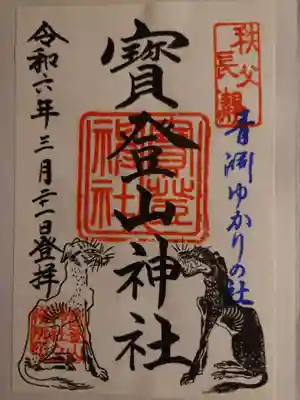 秩父
長瀞
青淵ゆかりの社
寳登山神社
令和六年三月二十一日登拝